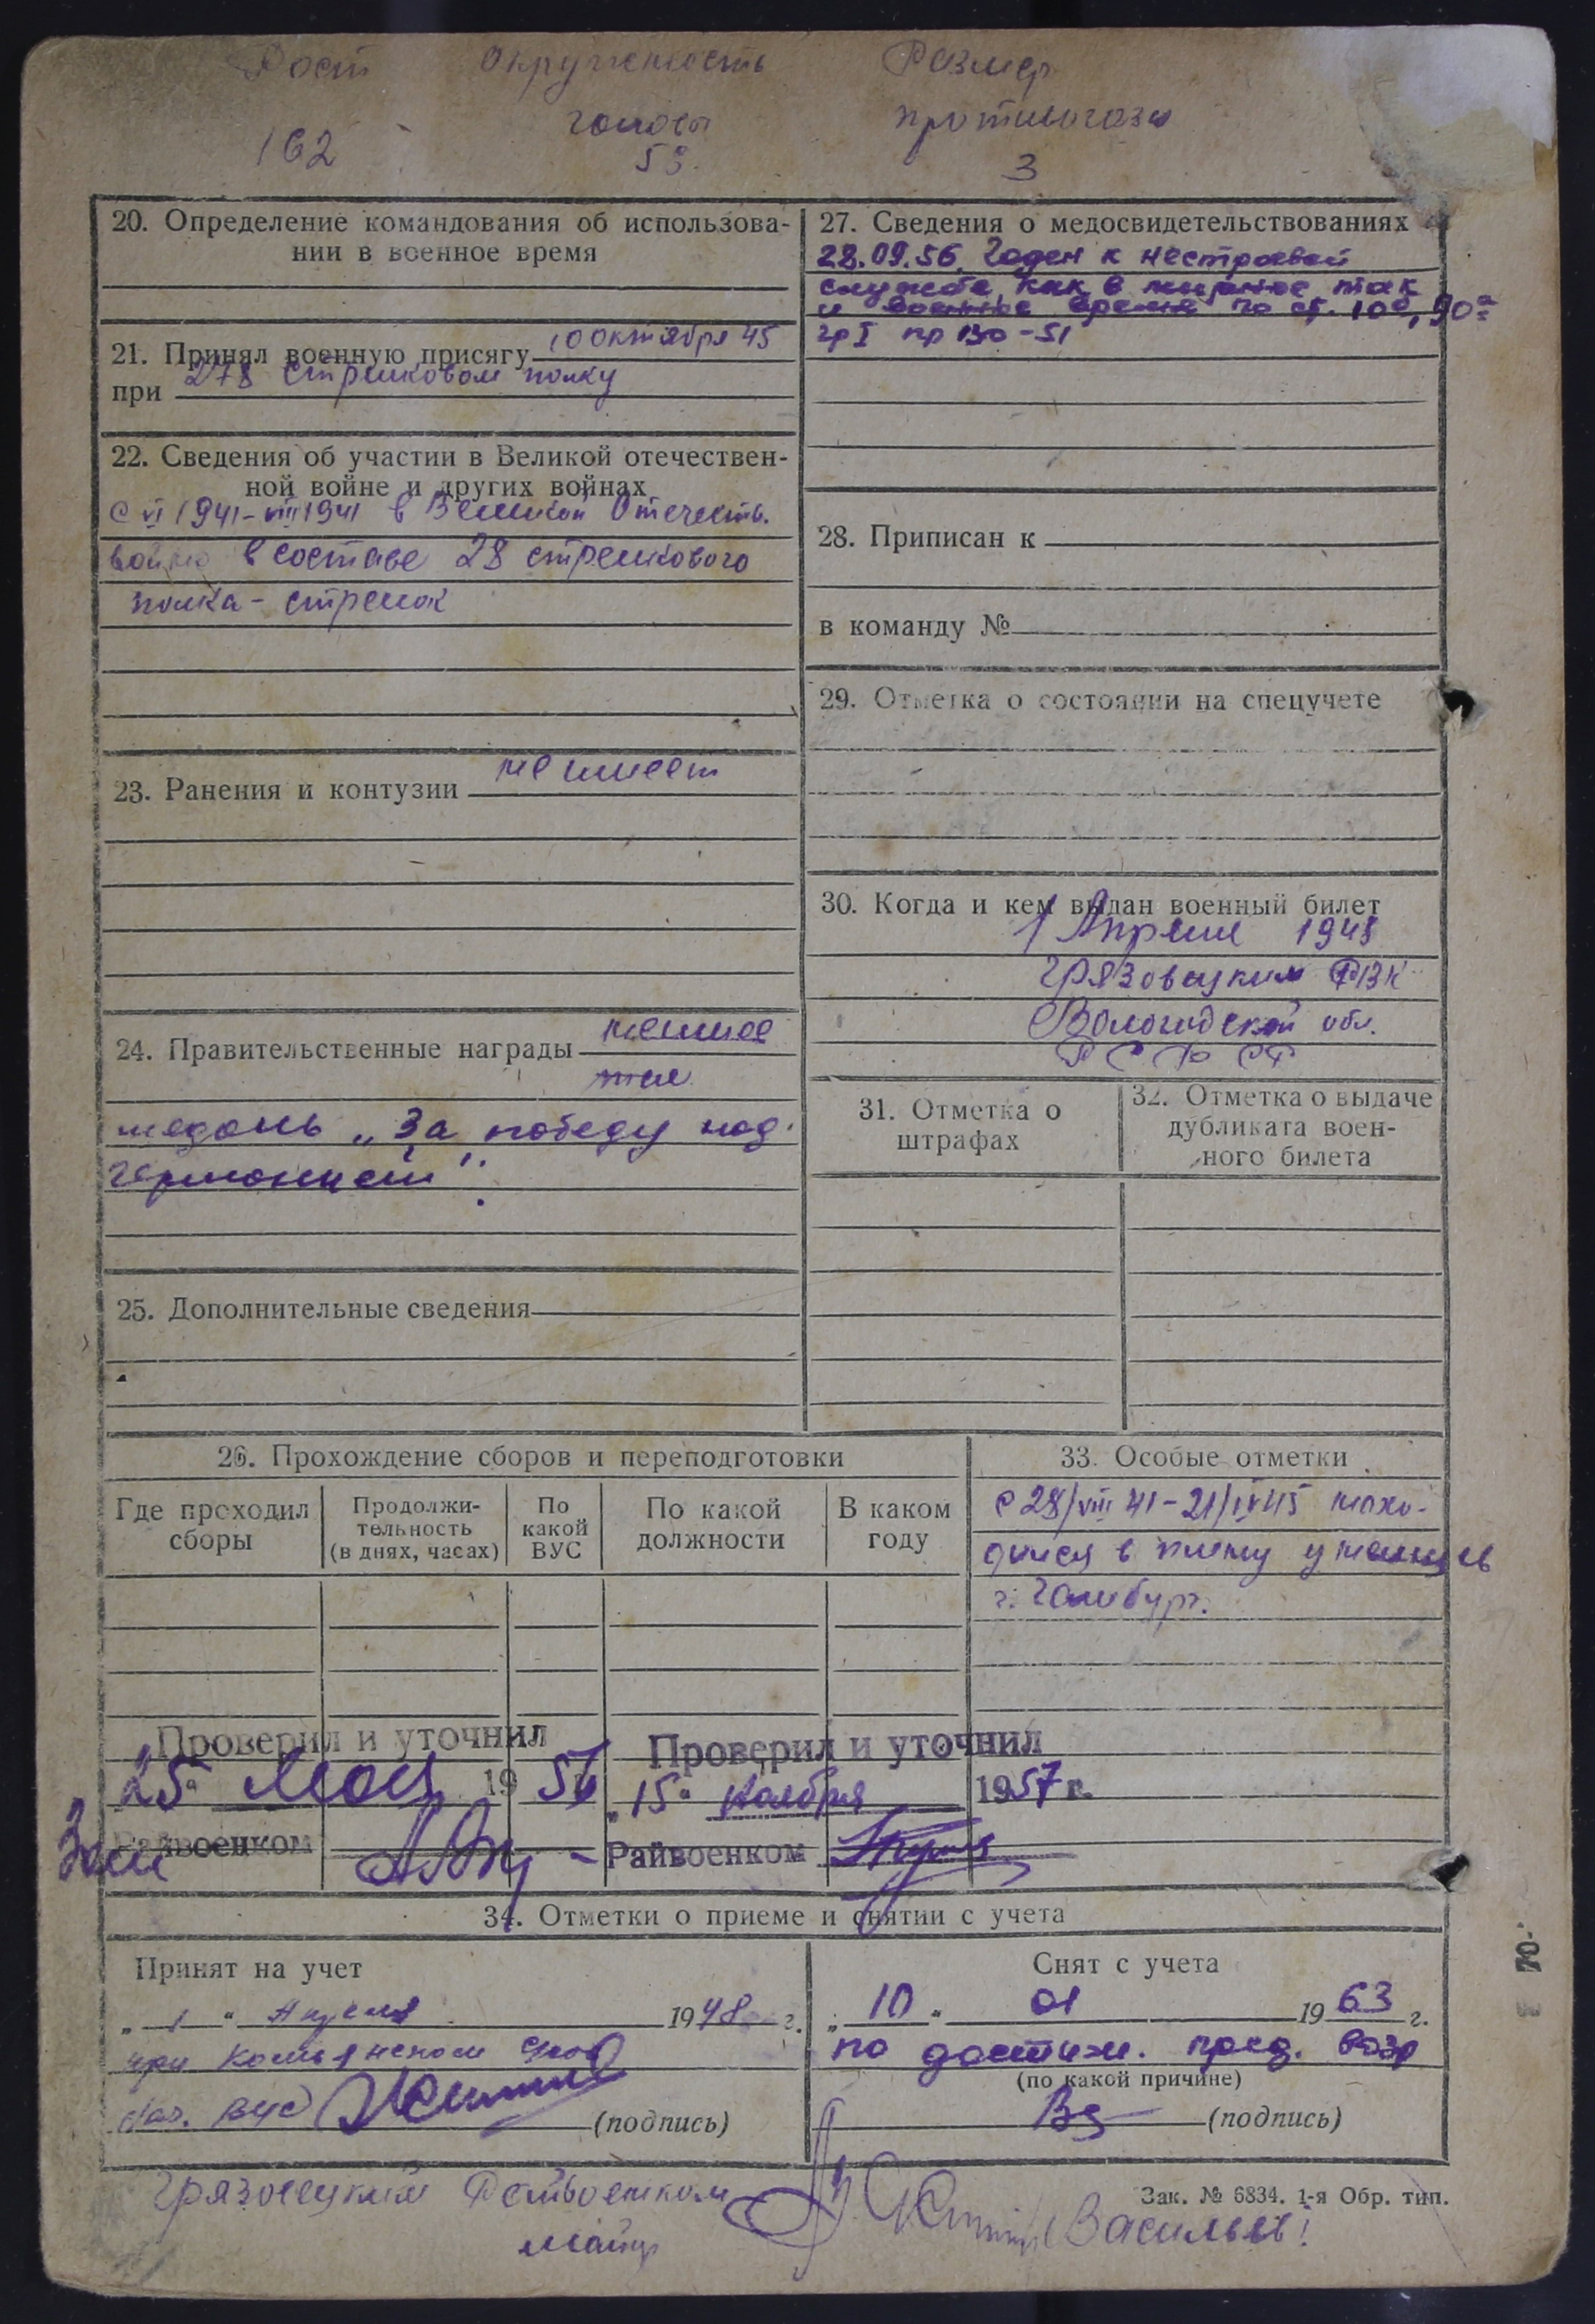 Рост Окружность Размер
головы противогаза
162 59. 3
20. Определение командования об использова-
нии в военное время
21. Принял военную присягу 10 октября 45
при 278 стрелковом полку
22. Сведения об участии в Великой отечествен-
ной войне и других войнах
с VI 1941-VIII 1941 в Великой Отечеств.
войне в составе 28 стрелкового
полка - стрелок
23. Ранения и контузии не имеет
24. Правительственные награды
медаль „За победу над
Германией".
25. Дополнительные сведения
27. Сведения о медосвидетельствованиях
28.09.56. Годен к нестроевой
службе как в мирное так
и военное время по ст. 10б, 90а
гр I пр 130-51
28. Приписан к
в команду №
29. Отметка о состоянии на спецучете
30. Когда и кем выдан военный билет
1 Апреля 1948
Грязовецким РВК
Вологодской обл.
РСФСР
31. Отметка о
штрафах
32. Отметка о выдаче
дубликата воен-
ного билета
26. Прохождение сборов и переподготовки
Где проходил
сборы
Продолжи-
тельность
(в днях, часах)
По
какой
ВУС
По какой
должности
В каком
году
33. Особые отметки
с 28/VIII 41-21/IV 45 нахо-
дился в плену у немцев
г. Гамбург.
Проверил и уточнил
25 мая 1956
Зам Райвоенком
Проверил и уточнил
„15" ноября 1957 г.
Райвоенком
34. Отметки о приеме и снятии с учета
Принят на учет
„ 1 " Апреля 1948 г.
при
нач. ВУС (подпись)
Снят с учета
„ 10 " 01 1963 г.
по достиж. пред. возр
(по какой причине)
(подпись)
Зак. № 6834. 1-я Обр. тип.
Грязовецкий Райвоенком
майор Васильев